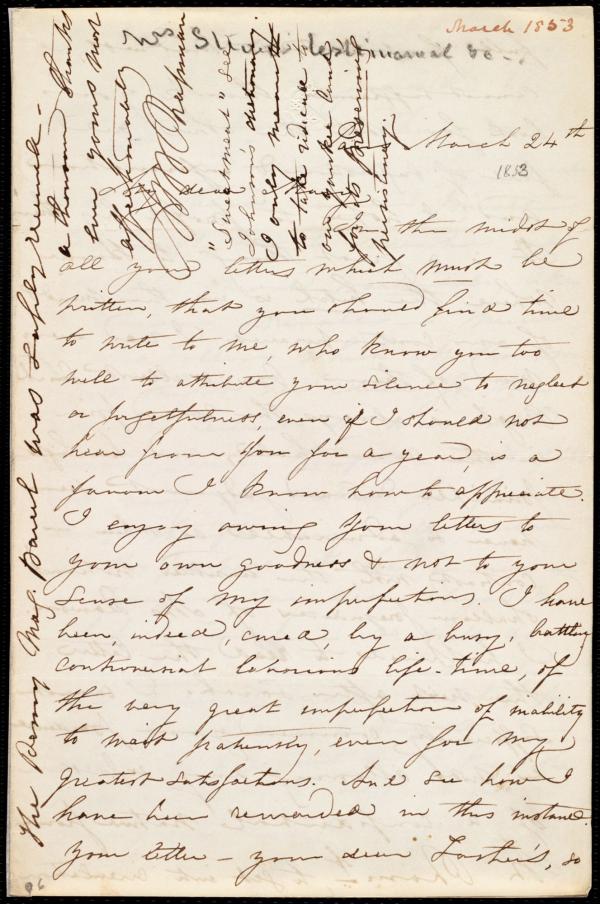 March 1853
Mrs Stowe's Testimonial &c -
March 24th
1853
My dear
In the midst of
all your letters which must be
written, that you should find time
to write to me, who know you too
well to attribute your silence to neglect
or forgetfulness, even if I should not
hear from you for a year, is a
favour I know how to appreciate.
I enjoy owing your letters to
your own goodness & not to your
sense of my imperfections. I have
been, indeed, cured, by a busy, battling
controversial laborious life-time, of
the very great imperfection of inability
to wait patiently, even for my
greatest satisfactions. And see how I
have been rewarded in this instance.
your letter - your dear Father's, so
96
The Penny Mag. Parcel was safely received -
a thousand thanks
Ever yours most
affectionately
Chapman
"Sweetmeat" See
Johnson's dictionary
I only meant
to take
our yankee
for its preserving
persistency.